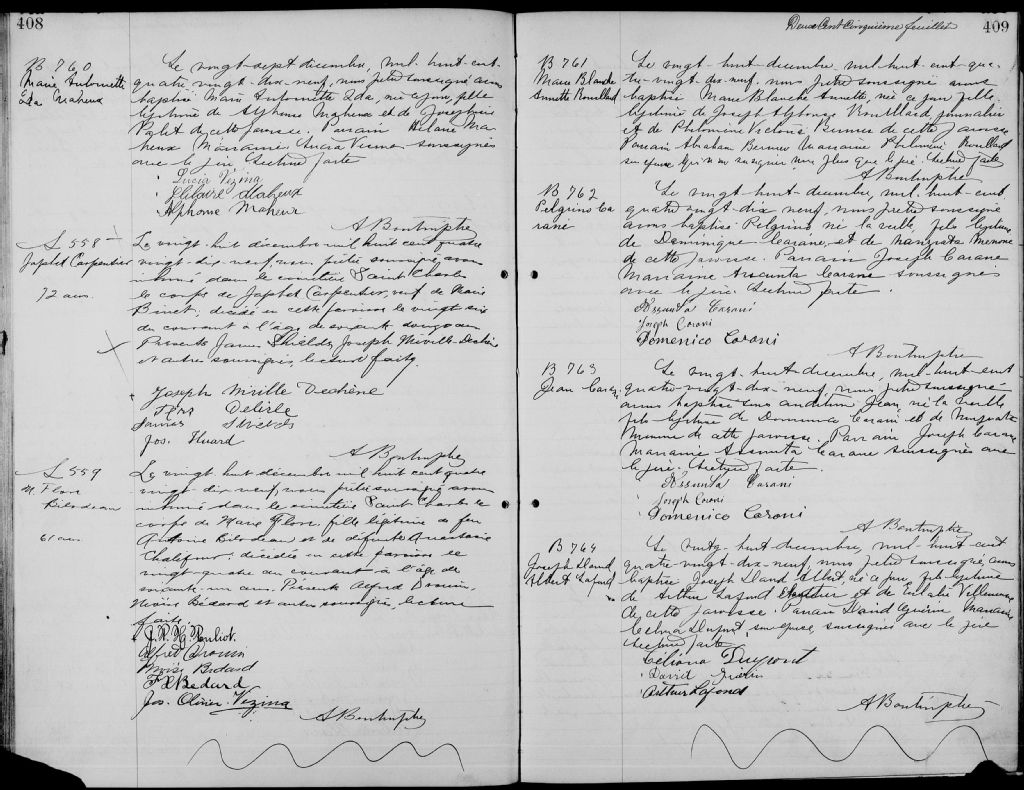 408
B 760
Marie Antoinette
Ida Maheux
Le vingt-sept decembre, mil-huit-cent-
quatre vingt-dix-neuf, nous prêtre soussigné avons
baptisé Marie Antoinette Ida, née ce jour, fille
légitime de Alphonse Maheux et de Joséphine
de cette paroisse. Parrain Hilaire Ma-
heux Marraine Lucia Vezina soussignés
avec le père. Lecture faite
Lucia Vézina
Hilaire Maheux
Alphonse Maheux
S 558
Japhet Carpentier
72 ans.
Le vingt-huit décembre mil huit cent quatre
vingt-dix-neuf, nous, prêtre soussigné, avons
inhumé dans le cimetière Saint Charles
le corps de Japhet Carpentier, veuf de Marie
Binet; décédé en cette paroisse le vingt six
du courant à l'âge de soixante douze ans
Présents James Shields, Joseph Miville-Dechène
et autres soussignés, lecture faite.
Joseph Miville Dechêne
Delisle
James Shields
Jos. Huard
S 559
M. Flore
Bilodeau
61 ans
Le vingt huit décembre mil huit cent quatre
vingt dix-neuf, nous, prêtre soussigné avons
inhumé dans le cimetière Saint Charles le
corps de Marie Flore, fille légitime de feu
Antoine Bilodeau et de défunte Anastasie
Chalifour; décédée en cette paroisse le
vingt-quatre du courant à l'âge de
soixante un ans. Présents Alfred Drouin,
Moïse Bédard et autres soussignés, lecture
faite.
Alfred Drouin
Moise Bedard
F X Bedard
Jos. Olivier Vézina
Deux Cent Cinquième feuillet
409
B 761
Marie Blanche
Annette Rouillard
Le vingt-huit-decembre, mil-huit-cent-qua-
tre-vingt-dix-neuf, nous prêtre soussigné avons
baptisé Marie Blanche Annette, née ce jour, fille
légitime de Joseph Alphonse Rouillard, journalier
et de Philomène Victoria Bernier de cette paroisse
Parrain Abraham Bernier Marraine Philomène Rouillard
son épouse qui n'ont su signer non plus que le père. Lecture faite
B 762
Pelgrino Ca
rane
Le vingt-huit-decembre, mil-huit-cent
quatre vingt-dix neuf, nous prêtre soussigné
avons baptisé Pelgrino, né la veille, fils légitime
de Dominique Carane, et de
de cette paroisse. Parrain Joseph Carane
Marraine Assunta Carane soussignés
avec le père. Lecture faite.
Assunta Caroni
Joseph Coroni
Domenico Coroni
B 763
Jean
Le vingt-huit-decembre, mil-huit-cent
quatre-vingt-dix-neuf, nous prêtre soussigné
avons baptisé sous condition Jean, né la veille
fils légitime de et de
de cette paroisse. Parrain Joseph Carane
Marraine Assunta Carane soussignés avec
le père. Lecture faite.
Assunta Carani
Joseph Coroni
Domenico Coroni
B 764
Joseph David
Albert Lafond
Le vingt-huit-decembre, mil-huit-cent
quatre vingt-dix-neuf, nous prêtre soussigné avons
baptisé Joseph David Albert né ce jour, fils légitime
de Arthur Lafond et de Eulalie Villeneuve
de cette paroisse. Parrain David Guérin Marraine
Celina Dupont, son épouse, soussignés avec le père
Lecture faite
Céliana Dupont
David Guérin
Arthur Lafond